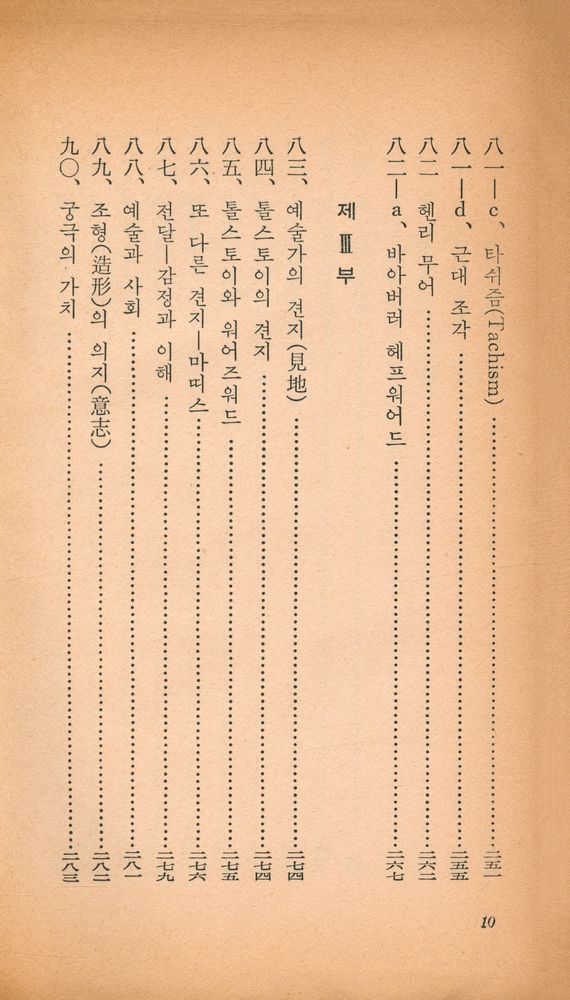 八一—c、타쉬즘(Tachism)……二五一
八一—d、근대 조각……二五五
八二 헨리 무어……二六二
八二—a、바아버러 헤프워어드……二六七
제Ⅲ부
八三、예술가의 견지(見地)……二七四
八四、톨스토이의 견지……二七四
八五、톨스토이와 워어즈워드……二七五
八六、또 다른 견지—마띠스……二七六
八七、전달—감정과 이해……二七九
八八、예술과 사회……二八一
八九、조형(造形)의 의지(意志)……二八二
九〇、궁극의 가치……二八三
10